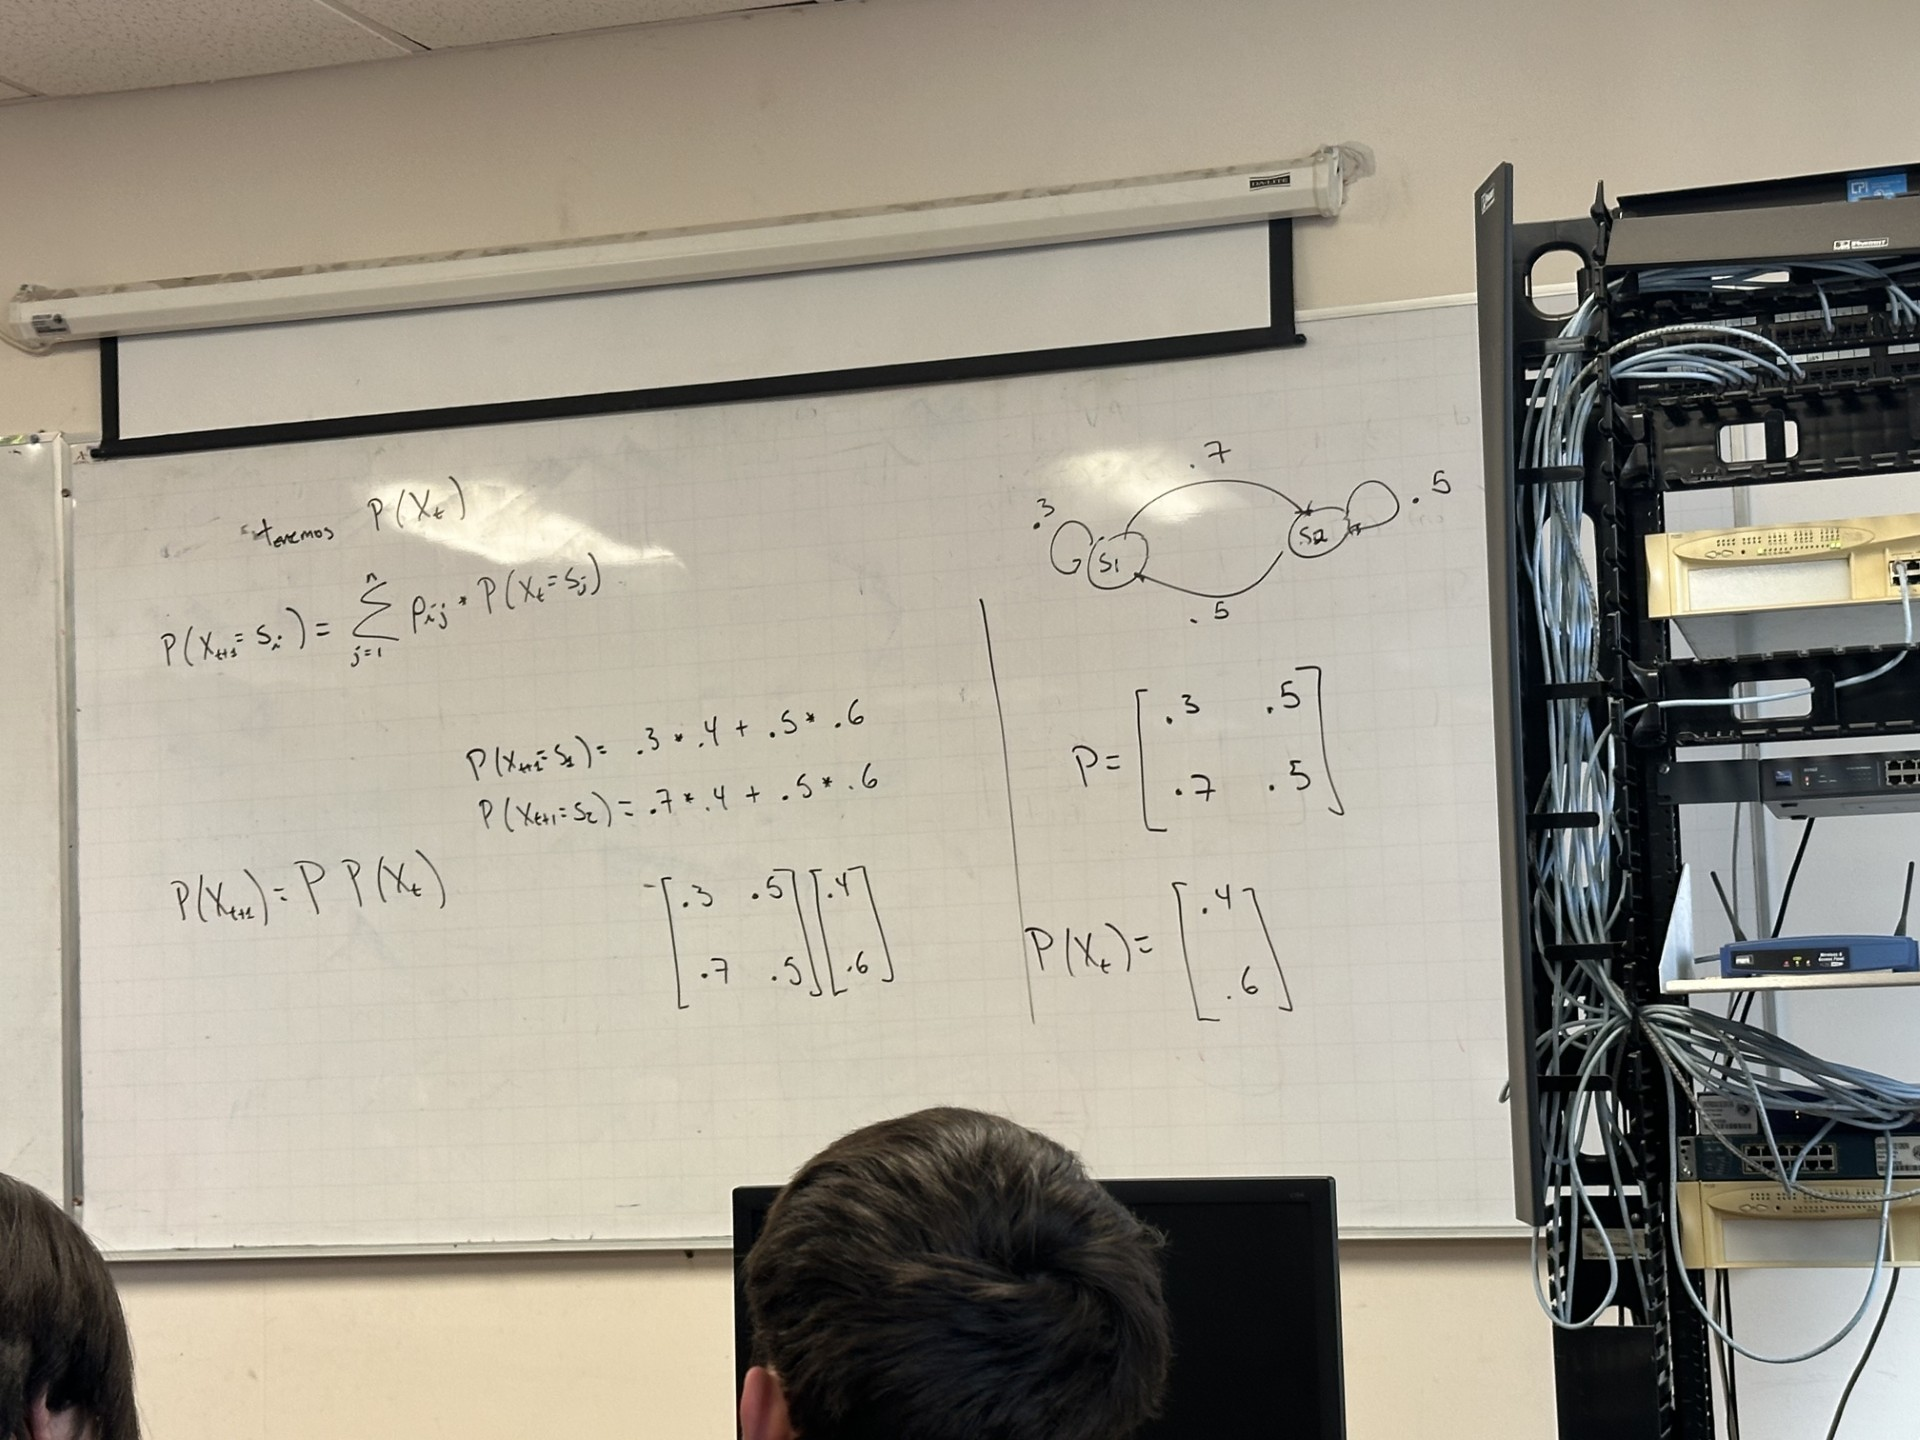 tenemos P(Xt)
P(Xt+1 = Si) = Σ j=1 n Pij * P(Xt = Sj)
P(Xt+1 = S1) = .3 * .4 + .5 * .6
P(Xt+1 = S2) = .7 * .4 + .5 * .6
P(Xt+1) = P P(Xt)
[.3 .5] [.4]
[.7 .5] [.6]
.7
.3 S1 S2 .5
.5
P = [.3 .5]
[.7 .5]
P(Xt) = [.4]
[.6]
DA-LITE
CPI